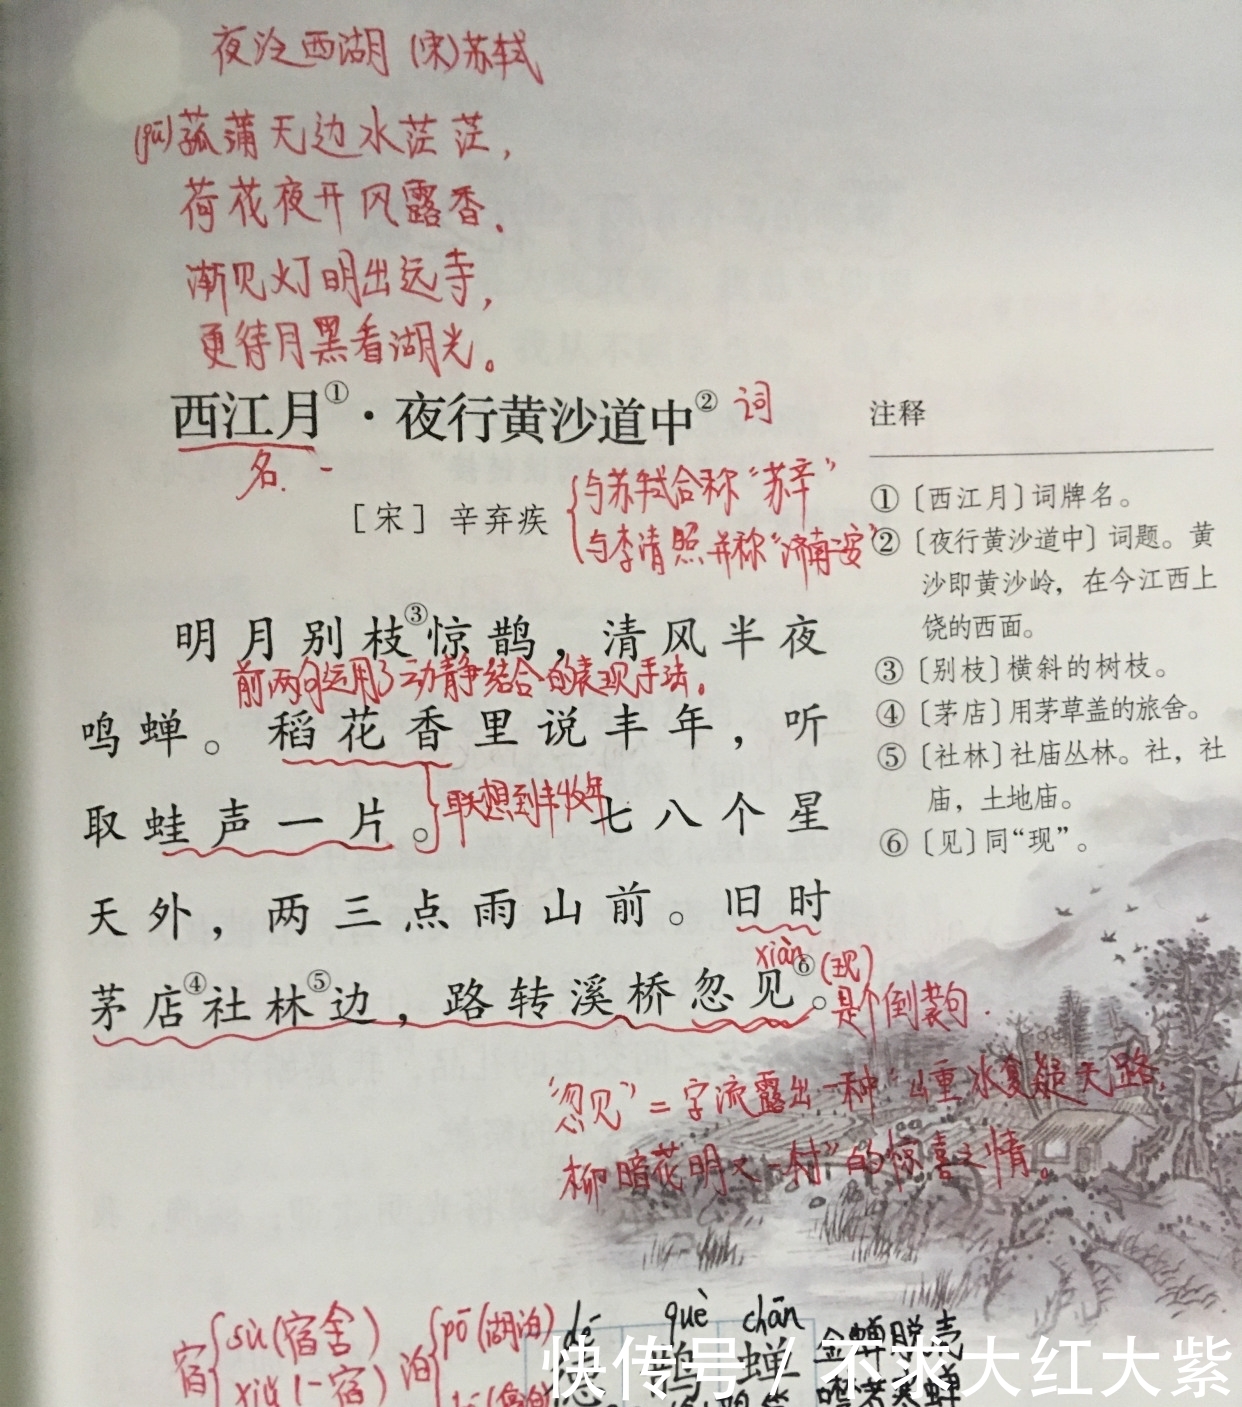 夜泛西湖 (宋)苏轼
(gū)菰蒲无边水茫茫，
荷花夜开风露香。
渐见灯明出远寺，
更待月黑看湖光。
西江月①·夜行黄沙道中② 词
名.
[宋] 辛弃疾
与苏轼合称“苏辛”
与李清照并称“济南二安”
明月别枝③惊鹊，清风半夜
前两句运用了动静结合的表现手法。
鸣蝉。稻花香里说丰年，听
联想到丰收年
取蛙声一片。七八个星
天外，两三点雨山前。旧时
xiàn (现)
茅店④社林⑤边，路转溪桥忽见⑥。
是个倒装句.
“忽见”二字流露出一种“山重水复疑无路，
柳暗花明又一村”的惊喜之情。
注释
①〔西江月〕词牌名。
②〔夜行黄沙道中〕词题。黄
沙即黄沙岭，在今江西上
饶的西面。
③〔别枝〕横斜的树枝。
④〔茅店〕用茅草盖的旅舍。
⑤〔社林〕社庙丛林。社，社
庙，土地庙。
⑥〔见〕同“现”。
宿 sù(宿舍)
xiǔ(一宿)
泊 pō(湖泊)
què chán
鹊 蝉 金蝉脱壳
快传号 / 不求大红大紫